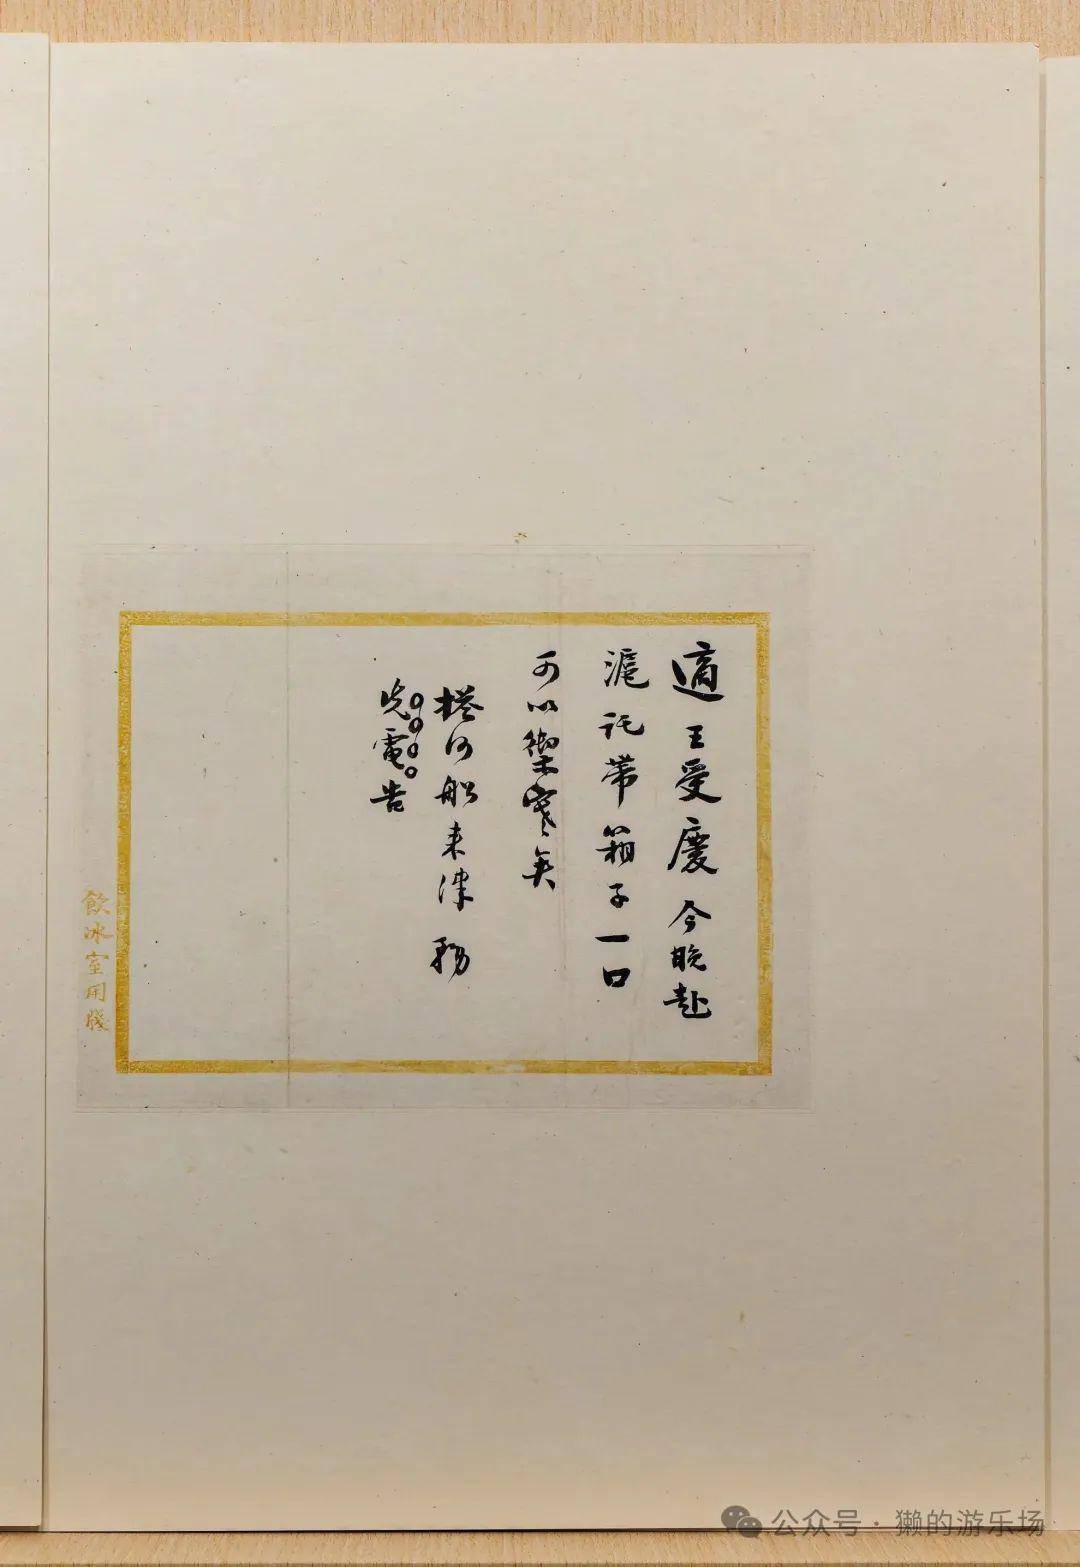 適王受慶今晚赴
滬託帶箱子一口
可以禦寒矣
搭何船来津務
先電告
飲冰室用牋
公众号·獭的游乐场